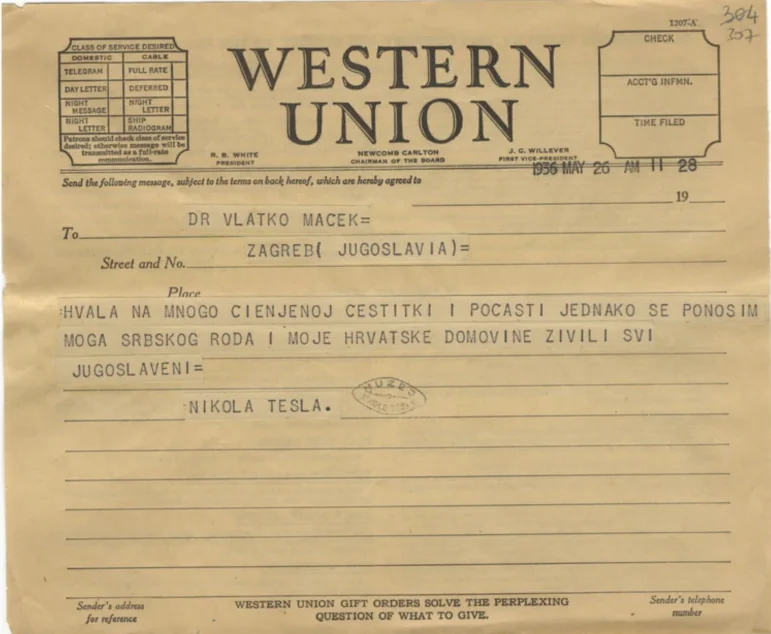 1207-A
304
307
CLASS OF SERVICE DESIRED
DOMESTIC CABLE
TELEGRAM FULL RATE
DAY LETTER DEFERRED
NIGHT MESSAGE NIGHT LETTER
NIGHT LETTER SHIP RADIOGRAM
Patrons should check class of service
desired; otherwise message will be
transmitted as a full-rate
communication.
WESTERN
UNION
R. B. WHITE
PRESIDENT
NEWCOMB CARLTON
CHAIRMAN OF THE BOARD
J. C. WILLEVER
FIRST VICE-PRESIDENT
CHECK
ACCT'G INFMN.
TIME FILED
1936 MAY 26 AM 11 28
Send the following message, subject to the terms on back hereof, which are hereby agreed to
19
To DR VLATKO MACEK=
Street and No. ZAGREB( JUGOSLAVIA)=
Place
:HVALA NA MNOGO CIENJENOJ CESTITKI I POCASTI JEDNAKO SE PONOSIM
MOGA SRBSKOG RODA I MOJE HRVATSKE DOMOVINE ZIVILI SVI
JUGOSLAVENI=
:NIKOLA TESLA.
MUZEJ
NIKOLE TESLE
Sender's address
for reference
WESTERN UNION GIFT ORDERS SOLVE THE PERPLEXING
QUESTION OF WHAT TO GIVE.
Sender's telephone
number